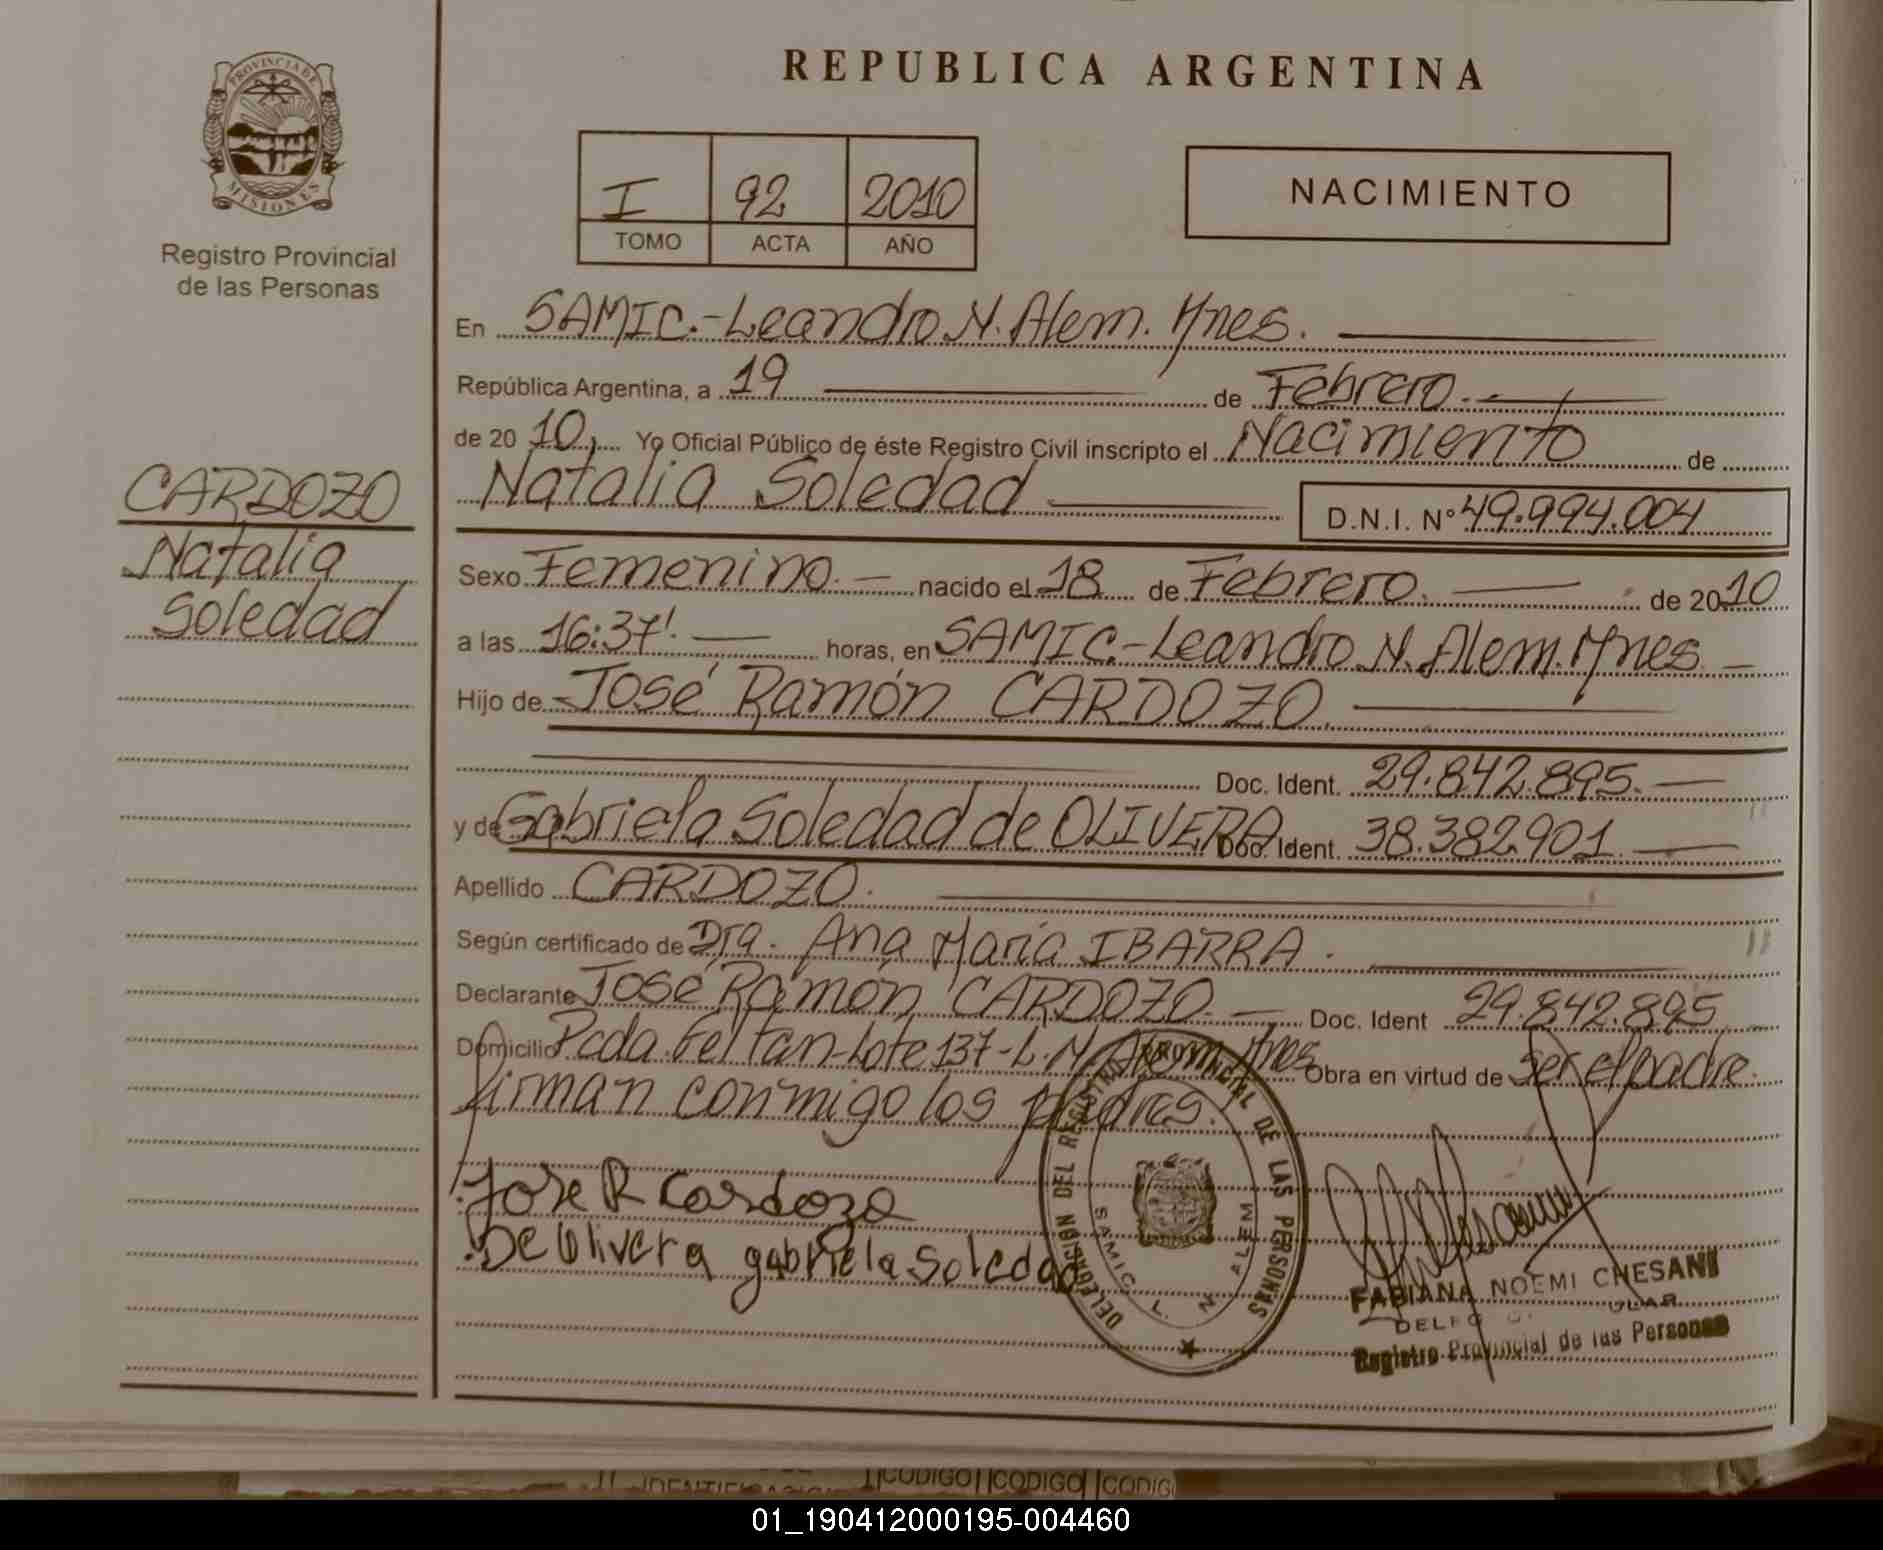 PROVINCIA DE
MISIONES
Registro Provincial
de las Personas
CARDOZO
Natalia
Soledad
REPUBLICA ARGENTINA
I 92 2010
TOMO ACTA AÑO
NACIMIENTO
En SAMIC.-Leandro N. Alem. Mnes.
República Argentina, a 19 de Febrero.
de 20 10, Yo Oficial Público de éste Registro Civil inscripto el Nacimiento de
Natalia Soledad D.N.I. Nº 49.994.004
Sexo Femenino. nacido el 18 de Febrero. de 2010
a las 16:37'. horas, en SAMIC.-Leandro N. Alem. Mnes
Hijo de José Ramón CARDOZO.
Doc. Ident. 29.842.895.
y de Gabriela Soledad de OLIVERA Doc. Ident. 38.382.901
Apellido CARDOZO.
Según certificado de Dra. Ana María IBARRA.
Declarante José Ramón CARDOZO. Doc. Ident 29.842.895
Domicilio Pcda. Beltran-Lote 137-L. N. Alem. Mnes Obra en virtud de ser el padre.
firman conmigo los padres.
Jose R Cardozo
De Olivera gabriela Soledad
DELEGACION DEL REGISTRO PROVINCIAL DE LAS PERSONAS
SAMIC L. N. ALEM
FABIANA NOEMI CHESANI
Registro Provincial de las Personas
CODIGO CODIGO
01_190412000195-004460